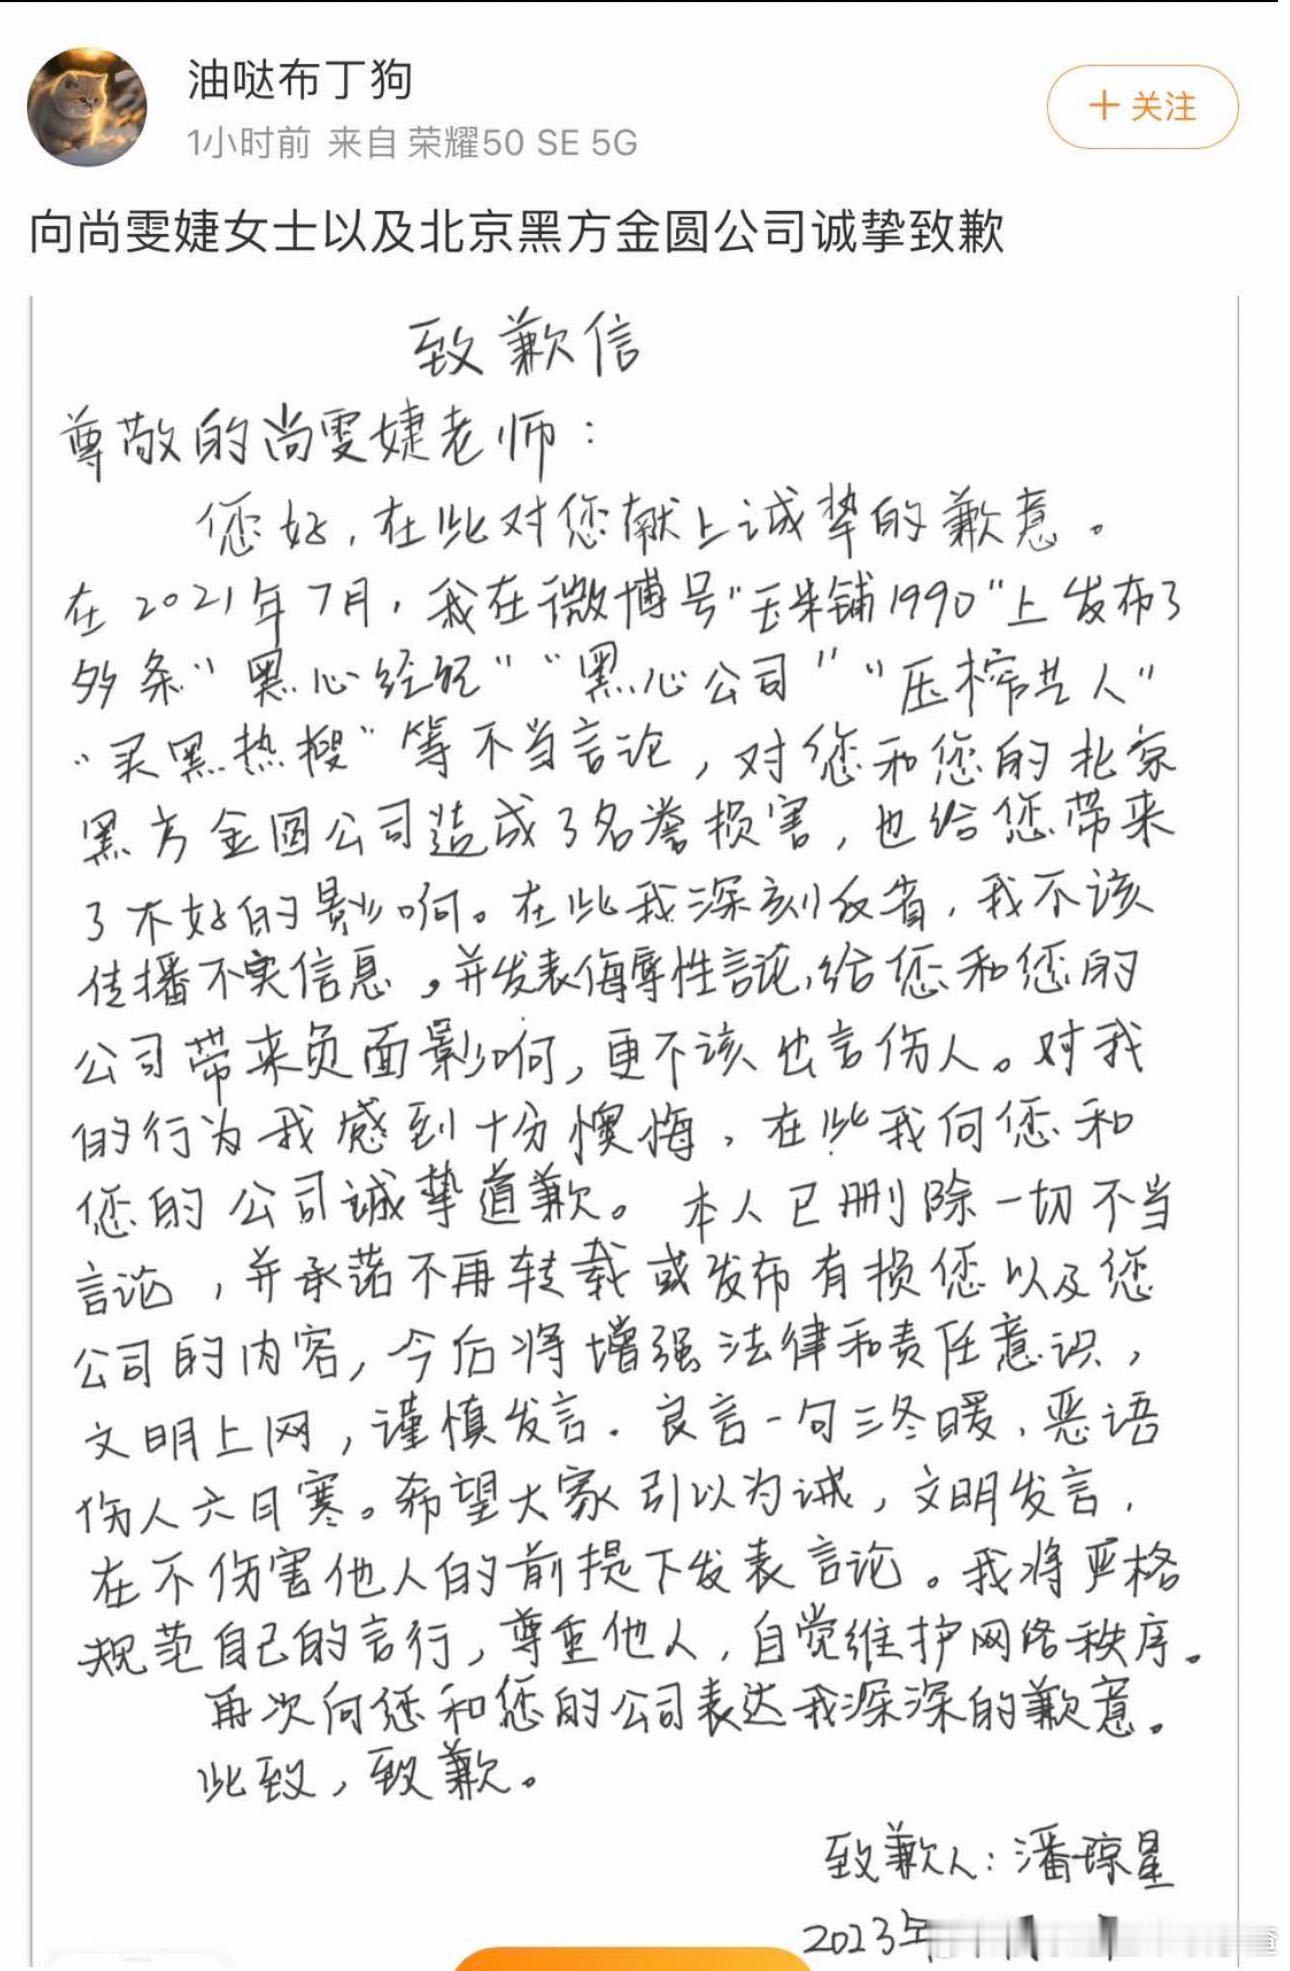 油哒布丁狗
1小时前 来自 荣耀50 SE 5G
+关注
向尚雯婕女士以及北京黑方金圆公司诚挚致歉
致歉信
尊敬的尚雯婕老师：
您好，在此对您献上诚挚的歉意。
在2021年7月，我在微博号“玉米铺1990”上发布了
多条“黑心经纪”“黑心公司”“压榨艺人”
“买黑热搜”等不当言论，对您和您的北京
黑方金圆公司造成了名誉损害，也给您带来
了不好的影响。在此我深刻反省，我不该
传播不实信息，并发表侮辱性言论，给您和您的
公司带来负面影响，更不该出言伤人。对我
的行为我感到十分懊悔，在此我向您和
您的公司诚挚道歉。本人已删除一切不当
言论，并承诺不再转载或发布有损您以及您
公司的内容，今后将增强法律和责任意识，
文明上网，谨慎发言。良言一句三冬暖，恶语
伤人六月寒。希望大家引以为诫，文明发言，
在不伤害他人的前提下发表言论。我将严格
规范自己的言行，尊重他人，自觉维护网络秩序。
再次向您和您的公司表达我深深的歉意。
此致，致歉。
致歉人：潘琼星
2023年